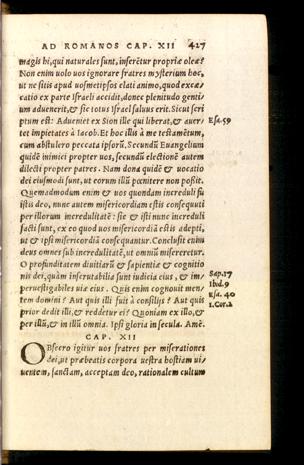 AD ROMANOS CAP. XII 427
magis hi, qui naturales sunt, inserētur propriæ oleæ?
Non enim uolo uos ignorare fratres mysterium hoc,
ut ne sitis apud uosmetipsos elati animo, quod excæ/
catio ex parte Israeli accidit, donec plenitudo genti/
um aduenerit, & sic totus Israel saluus erit. Sicut scri
ptum est: Adueniet ex Sion ille qui liberat, & auer/
tet impietates à Iacob. Et hoc illis à me testamētum,
cum abstulero peccata ipsorū. Secundū Euangelium
quidē inimici propter uos, secundū electionē autem
dilecti propter patres. Nam dona quidē & uocatio
dei eiusmodi sunt, ut eorum illū pœnitere non possit.
Quemadmodum enim & uos quondam increduli fu
istis deo, nunc autem misericordiam estis consequuti
per illorum incredulitatē: sic & isti nunc increduli
facti sunt, ex eo quod uos misericordiā estis adepti,
ut & ipsi misericordiā consequantur. Conclusit enim
deus omnes sub incredulitatē, ut omniū misereretur.
O profunditatem diuitiarū & sapientiæ & cognitio
nis dei, quàm inscrutabilia sunt iudicia eius, & im/
peruestigabiles uiæ eius. Quis enim cognouit men/
tem domini? Aut quis illi fuit à consilijs? Aut quis
prior dedit illi, & reddetur ei? Quoniam ex illo, &
per illū, & in illū omnia. Ipsi gloria in secula. Amē.
Esa. 59
Sap. 17
Ibid. 9
Esa. 40
1. Cor. 2
CAP. XII
OBsecro igitur uos fratres per miserationes
dei, ut præbeatis corpora uestra hostiam ui/
uentem, sanctam, acceptam deo, rationalem cultum